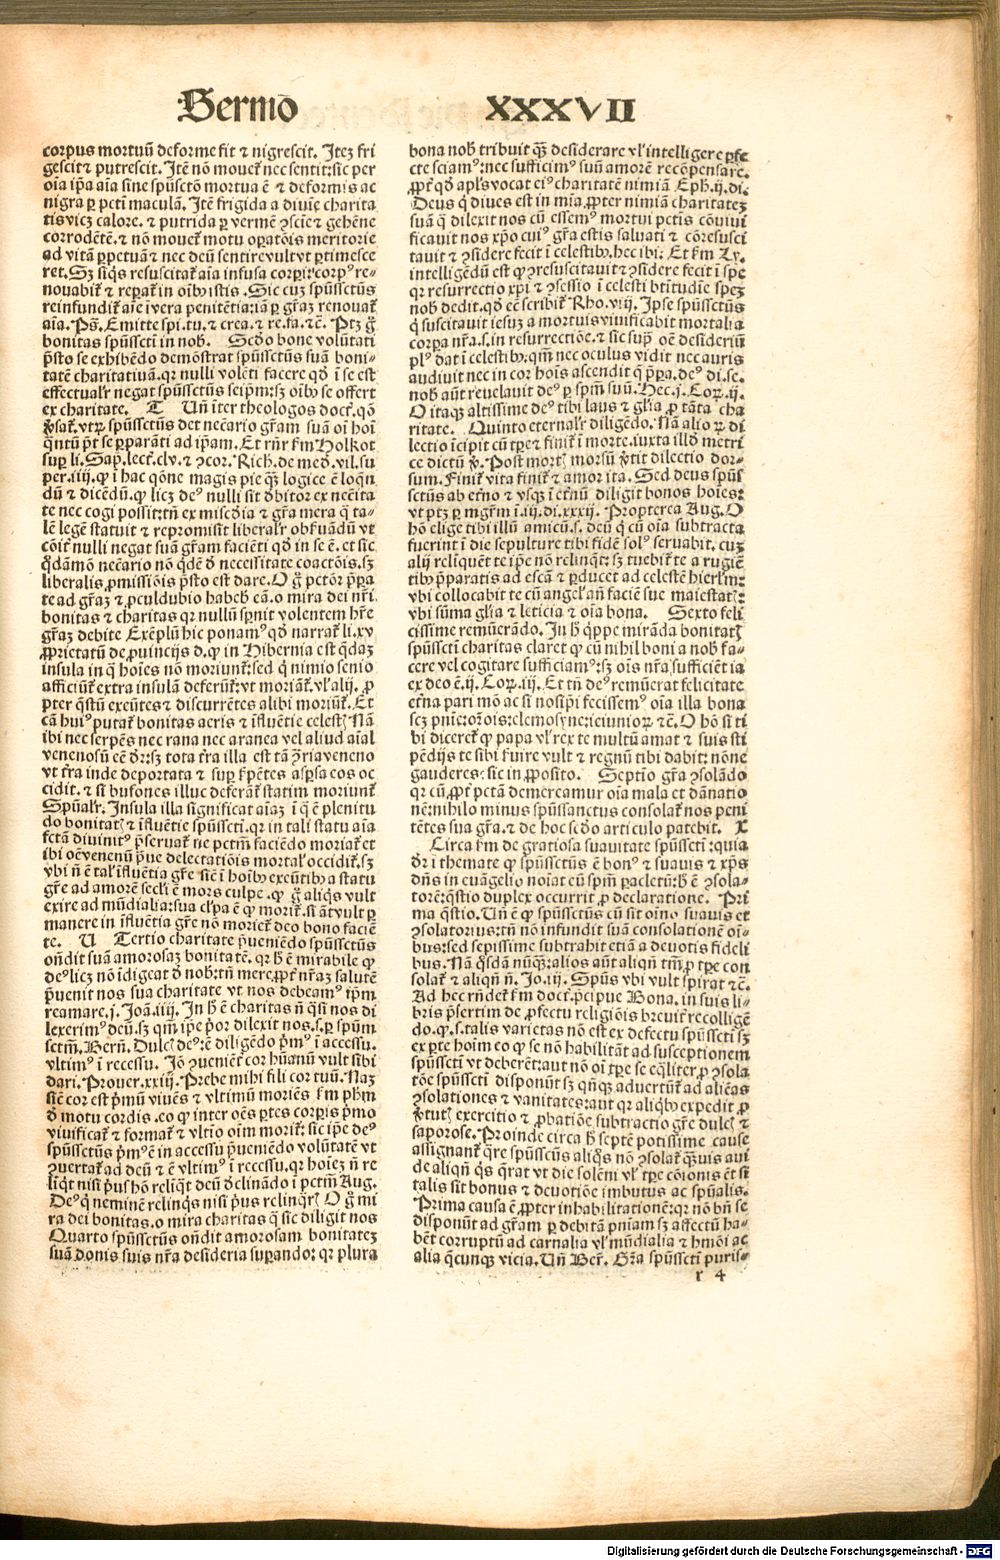 Sermō XXXVII
corpus mortuū deforme fit ⁊ nigrescit. Itez fri
gescit ⁊ putrescit. Itē nō mouet᷑ nec sentit: sic per
oīa ip̄a aīa sine sp̄ūsctō mortua ē ⁊ deformis ac
nigra ꝑ pctī maculā. Itē frigida a diuīe charita
tis vicz calore. ⁊ putrida ꝑ vermē ꝯsciē ⁊ gehēne
corrodētē. ⁊ nō mouet᷑ motu oꝑatōis meritorie
ad vitā ꝑpetuā ⁊ nec deū sentire vult vt ꝑtimesce
ret. Sz siq̄s resuscitat᷑ aīa infusa corpori: corpꝰ re-
nouabit᷑ ⁊ reꝑat᷑ in oībꝫ istis. Sic cuz sp̄ūssctūs
reinfundit᷑ aīe ī vera penitētia: iā ꝑ gr̄az renouat᷑
aīa. Ps̄. Emitte spi. tu. ⁊ crea. ⁊ re. fa. ⁊c̄. Ptz g̊
bonitas sp̄ūsscti in nob̄. Scd̓o bone volūtati
p̄sto se exhibēdo demōstrat sp̄ūssctūs suā boni-
tatē charitatiuā. qr nulli volēti facere qd̓ ī se est
effectualr̄ negat sp̄ūssctūs seip̄m: sz oībꝫ se offert
ex charitate. T Un̄ īter theologos doct̄. qō
ꝟsat᷑. vtꝝ sp̄ūssctūs det nec̄ario gr̄am suā oī hoī
q̄ntū p̄t se p̄parāti ad ip̄am. Et rn̄r ẜm Holkot
suꝑ li. Sap̄. lect̄. clv. ⁊ ꝯcor. Rich̄. de med̓. vil. su
per. iiij. ꝙ ī hac qōne magis pie qꝫ logice ē loqn̄
dū ⁊ dicēdū. ꝙ licz deꝰ nulli sit d̓bitor ex nec̄ita
te nec cogi possit: tn̄ ex mīscd̓ia ⁊ gr̄a mera q̨ ta-
lē legē statuit ⁊ repromisit liberalr̄ obẜuādū vt
cōit᷑ nulli negat suā gr̄am faciēti qd̓ in se ē. et sic
q̄dāmō nec̄ario nō q̄dē d̓ necessitate coactōis. sz
liberalis ꝓmissiōis p̄sto est dare. O g̊ pctōr p̄ꝑa
te ad gr̄az ⁊ ꝓculdubio habeb̄ eā. o mira dei nr̄i.
bonitas ⁊ charitas qr nullū sꝑnit volentem hr̄e
gr̄az debite Exēplū hic ponamꝰ qd̓ narrat᷑ li. xv
ꝓprietatū de ꝓuincijs d. ꝙ in Hibernia est q̄daz
insula in q̄ hoīes nō moriunt᷑: sed q̨ nimio senio
afficiūt᷑ extra insulā deferūt᷑: vt moriāt᷑. vl̓ alij. ꝓ
pter q̄stū exeūtes ⁊ discurrētes alibi moriūt᷑. Et
cā huiꝰ putat᷑ bonitas aeris ⁊ īfluētie celestꝭ Nā
ibi nec serpēs nec rana nec aranea vel aliud aīal
venenosū eē d̓r: sz tota t̄ra illa est tā ꝯria veneno
vt t̄ra inde deportata ⁊ suꝑ ẜpētes asꝑsa eos oc
cidit. ⁊ si bufones illuc deferāt᷑ statim moriunt᷑
Sp̄ūalr̄. Insula illa significat aīaz ī q̄ ē plenitu
do bonitatꝭ ⁊ īfluētie sp̄ūsscti. qr in tali statu aīa
sctā diuinitꝰ p̄seruat᷑ ne pctm̄ faciēdo moriat᷑ et
ibi oē venenū p̄ue delectatiōis mortal̓ occidit᷑. sz
vbi n̄ ē tal̓ īfluētia gr̄e sic̄ ī hoībꝫ exeūtibꝫ a statu
gr̄e ad amorē secl̓i ē mors culpe. ꝙ g̊ aliq̄s vult
exire ad mūdialia: sua cl̓pa ē ꝙ morit᷑. si āt vult ꝑ
manere in īfluētia gr̄e nō moriet᷑ deo bono faciē
te. U Tertio charitate p̄ueniēdo sp̄ūssctūs
ondit suā amorosaz bonitatē. qr h̄ ē mirabile ꝙ
deꝰ licz nō īdigeat d̓ nob̄: tn̄ mere ꝓpt̄ nr̄az salutē
p̄uenit nos sua charitate vt nos debeamꝰ ip̄m
reamare. j. Joā. iiij. In h̄ ē charitas n̄ q̄si nos di
lexerimꝰ deū. sz qm̄ ip̄e p̓or dilexit nos. s. ꝑ sp̄ūm
sctm̄. Bern̄. Dulcꝭ deꝰ: ē diligēdo p̓mꝰ ī accessu.
vltimꝰ ī recessu. Jō ꝯueniēt᷑ cor hūanū vult sibi
dari. Prouer. xxiij. Prebe mihi fili cor tuū. Naz
sic̄ cor est p̓mū viuēs ⁊ vltimū moriēs ẜm ph̄m
d̓ motu cordis. eo ꝙ inter oēs ꝑtes corꝑis p̓mo
viuificat᷑ ⁊ format᷑ ⁊ vltīo oīm morit᷑: sic ip̄e deꝰ
sp̄ūssctūs p̓mꝰ ē in accessu p̄ueniēdo volūtatē vt
ꝯuertat᷑ ad deū ⁊ ē vltimꝰ ī recessu. qr hoīez n̄ re
liq̄t nisi p̓us hō reliq̄t deū d̓clinādo ī pctm̄ Aug.
Deꝰ q̨ neminē relinq̄s nisi p̓us relinq̄rꝭ O g̊ mi
ra dei bonitas. o mira charitas q̄ sic diligit nos
Quarto sp̄ūssctūs ondit amorosam bonitatez
suā donis suis nr̄a desideria suꝑando: qr plura
bona nob̄ tribuit qꝫ desiderare vl̓ intelligere ꝑfe
cte sciamꝰ: nec sufficimꝰ suū amorē recōpensare.
ꝓpt̄ qd̓ apl̓s vocat eiꝰ charitatē nimiā Eph̄. ij. di.
Deus q̨ diues est in mīa ꝓpter nimiā charitatez
suā q̄ dilexit nos cū essemꝰ mortui pctīs cōuiui
ficauit nos xp̄o cuiꝰ gr̄a estis saluati ⁊ cōresusci
tauit ⁊ ꝯsidere fecit ī celestibꝫ. hec ibi. Et ẜm Ly.
intelligēdū est ꝙ ꝯresuscitauit ⁊ ꝯsidere fecit ī spe
qr resurrectio xpi ⁊ ꝯsessio ī celesti btītudīe spez
nob̄ dedit. qd̓ eē scribit᷑ Rho. viij. Ipse sp̄ūssctūs
q̨ suscitauit iesuz a mortuis viuificabit mortalia
corꝑa nr̄a. s. in resurrectiōe. ⁊ sic suꝑ oē desideriū
plꝰ dat ī celestibꝫ. qm̄ nec oculus vidit nec auris
audiuit nec in cor hoīs ascendit q̄ p̄ꝑa. deꝰ di. se.
nob̄ aūt reuelauit deꝰ ꝑ spm̄ suū. Hec. j. Coꝝ. ij.
O itaqꝫ altissime deꝰ tibi laus ⁊ gl̓ia ꝓ tāta cha
ritate. Quinto eternalr̄ diligēdo. Nā alioꝝ di
lectio īcipit cū tp̄e ⁊ finit᷑ ī morte. iuxta illd̓ metri
ce dictū ꝟ. Post mortꝭ morsū ꝟtit dilectio dor-
sum. Finit᷑ vita finit᷑ ⁊ amor ita. Sed deus sp̄ūs
sctūs ab et̄no ⁊ vsqꝫ ī et̄nū diligit bonos hoīes:
vt ptz ꝑ mgr̄m ī. iij. di. xxxij. Propterea Aug. O
hō elige tibi illū amicū. s. deū q̨ cū oīa subtracta
fuerint ī die sepulture tibi fidē solꝰ seruabit. cuz
alij reliquēt te ip̄e nō relinq̄t: sz tuebit᷑ te a rugiē
tibꝫ p̄paratis ad escā ⁊ ꝑducet ad celestē hierl̓m:
vbi collocabit te cū angel̓ an̄ faciē sue maiestatꝭ:
vbi sūma gl̓ia ⁊ leticia ⁊ oīa bona. Sexto feli
cissime remūerādo. In h̄ q̄ppe mirāda bonitatꝭ
sp̄ūsscti charitas claret ꝙ cū nihil boni a nob̄ fa-
cere vel cogitare sufficiamꝰ: sz oīs nr̄a sufficiēt ia
ex deo ē. ij. Coꝝ. iij. Et tn̄ deꝰ remūerat felicitate
et̄na pari mō ac si nosip̄i fecissemꝰ oīa illa bona
scz pnīe: orōis: elemosyne: ieiunioꝝ ⁊c̄. O hō si ti
bi diceret᷑ ꝙ papa vl̓ rex te multū amat ⁊ suis sti
pēdijs te sibi ẜuire vult ⁊ regnū tibi dabit: nōne
gauderes: sic in ꝓposito. Septīo gr̄a ꝯsolādo
qr cū ꝓpt̄ pctā demereamur oīa mala et dānatio
nē: nihilo minus sp̄ūssanctus consolat᷑ nos peni
tētes sua gr̄a. ⁊ de hoc scd̓o articulo patebit. X
Circa ẜm de gratiosa suauitate sp̄ūsscti: quia
d̓r ī themate ꝙ sp̄ūssctūs ē bonꝰ ⁊ suauis ⁊ xp̄s
dn̄s in euāgelio noīat eū spm̄ paracletū: h̄ ē ꝯsola-
torē: q̄stio duplex occurrit ꝓ declaratione. Pri
ma q̄stio. Un̄ ē ꝙ sp̄ūssctūs cū sit oīno suauis et
ꝯsolatorius: tn̄ nō infundit suā consolationē oī-
bus: sed sepissime subtrahit etiā a deuotis fideli
bus. Nā q̄sdā nūqꝫ: alios aūt aliqn̄ tm̄ ꝓ tp̄e con
solat᷑ ⁊ aliqn̄ n̄. Jo. iij. Sp̄ūs vbi vult spirat ⁊c̄.
Ad hec rn̄det᷑ ẜm doct̄. p̄cipue Bona. in suis li-
bris p̄sertim de ꝓfectu religiōis breuit᷑ recolligē
do. ꝙ. s. talis varietas nō est ex defectu sp̄ūsscti sz
ex ꝑte hoīm eo ꝙ se nō habilitāt ad susceptionem
sp̄ūsscti vt deberēt: aut nō oī tp̄e se eq̄liter ꝓ ꝯsola
tōe sp̄ūsscti disponūt sz qn̄qꝫ aduertūt᷑ ad aliēas
ꝯsolationes ⁊ vanitates: aut qr aliqībꝫ expedit ꝓ
ꝟtutꝭ exercitio ⁊ ꝓbatiōe subtractio gr̄e dulcꝭ ⁊
saporose. Proinde circa h̄ septē potissime cause
assignant᷑ q̄re sp̄ūssctūs aliq̄s nō ꝯsolat᷑ q̄uis aui
de aliqn̄ q̄s q̄rat vt die solēni vl̓ tp̄e cōionis ēt si
talis sit bonus ⁊ deuotiōe imbutus ac sp̄ūalis.
Prima causa ē ꝓpter inhabilitationē: qr nō bn̄ se
disponūt ad gr̄am ꝑ debitā pn̄iam sz affectū ha-
bēt corruptū ad carnalia vl̓ mūdialia ⁊ hmōi ac
alia q̄cunqꝫ vicia. Un̄ Ber̄. Gr̄a sp̄ūsscti puris-
r 4
Digitalisierung gefördert durch die Deutsche Forschungsgemeinschaft - DFG